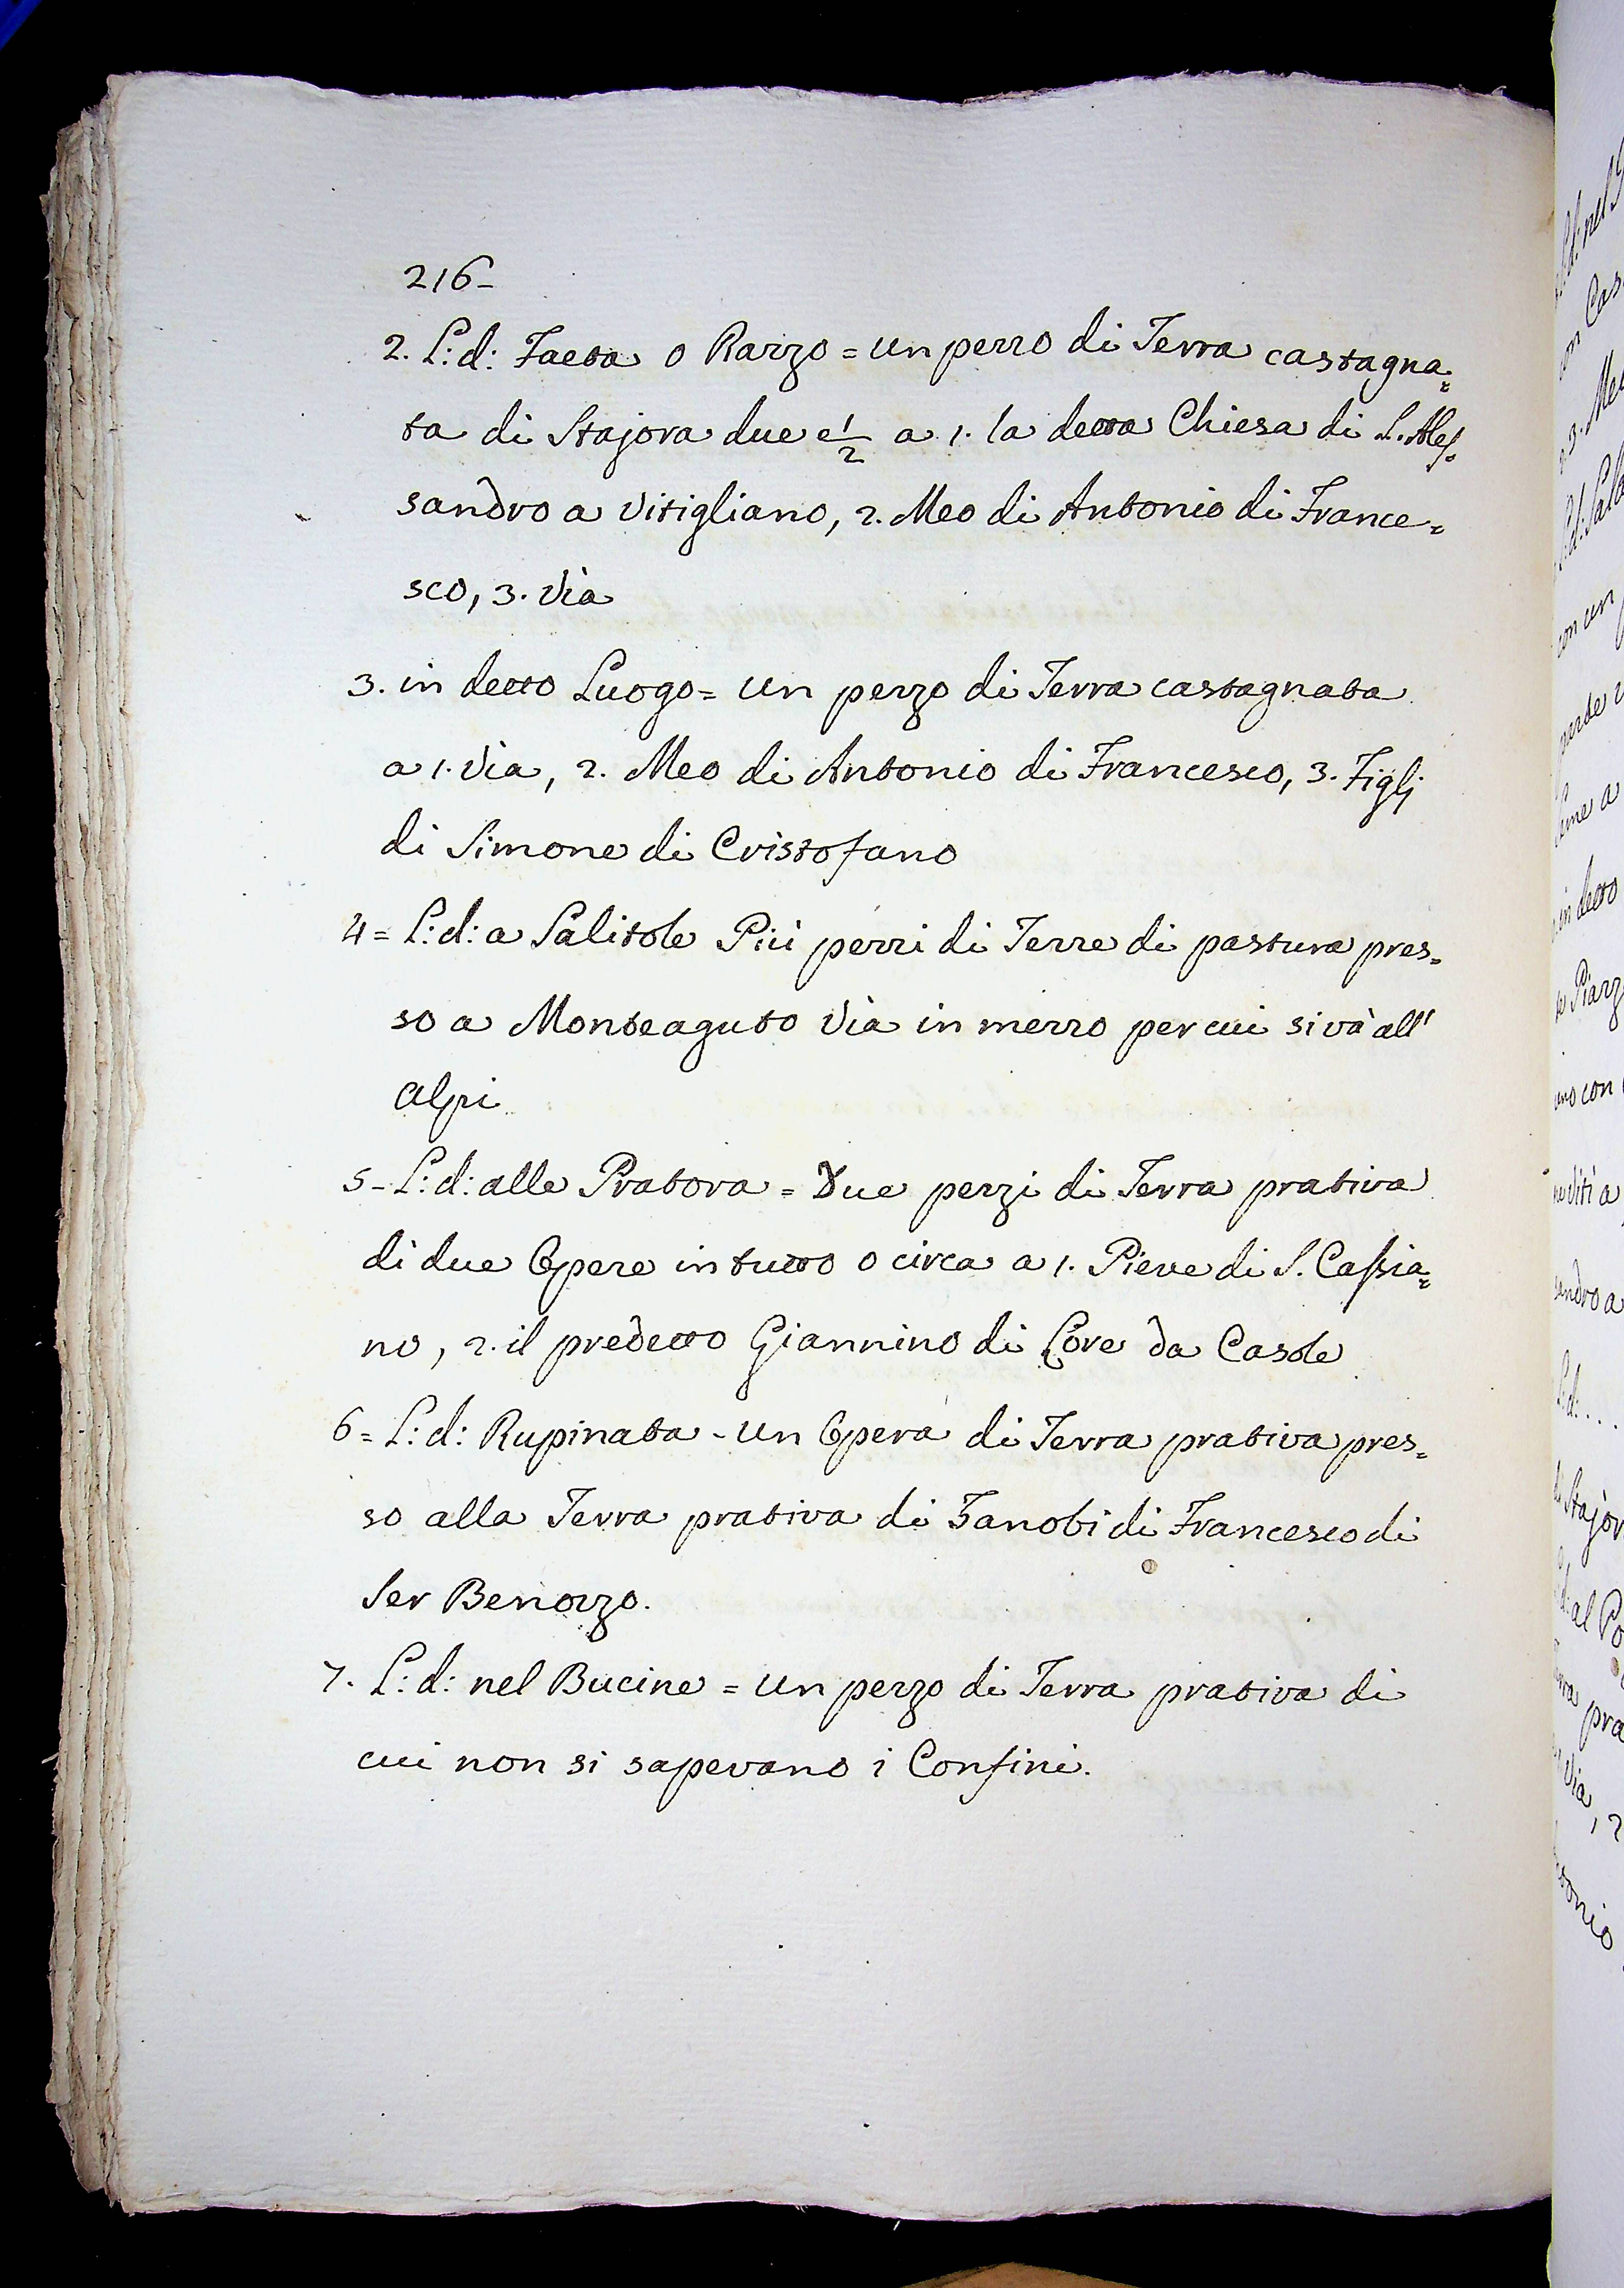 216-
2. L: d: Faeta o Razzo = un pezzo di Terra castagna=
ta di Stajora due e 1/2 a 1. la detta Chiesa di S. Ales=
sandro a Vitigliano, 2. Meo di Antonio di France=
sco, 3. Via
3. in detto Luogo = un pezzo di Terra castagnata
a 1. Via, 2. Meo di Antonio di Francesco, 3. Figlj
di Simone di Cristofano
4 = L: d: a Salitole Più pezzi di Terre di pastura pres=
so a Monteaguto Via in mezzo per cui si và all'
Alpi
5 - L: d: alle Pratora = Due pezzi di Terra prativa
di due Opere in tutto o circa a 1. Pieve di S. Cassia=
no, 2. il predetto Giannino di Core da Casole
6 = L: d: Rupinata - un Opera di Terra prativa pres=
so alla Terra prativa di Zanobi di Francesco di
Ser Benozzo.
7. L: d: nel Bucine = un pezzo di Terra prativa di
cui non si sapevano i Confini.